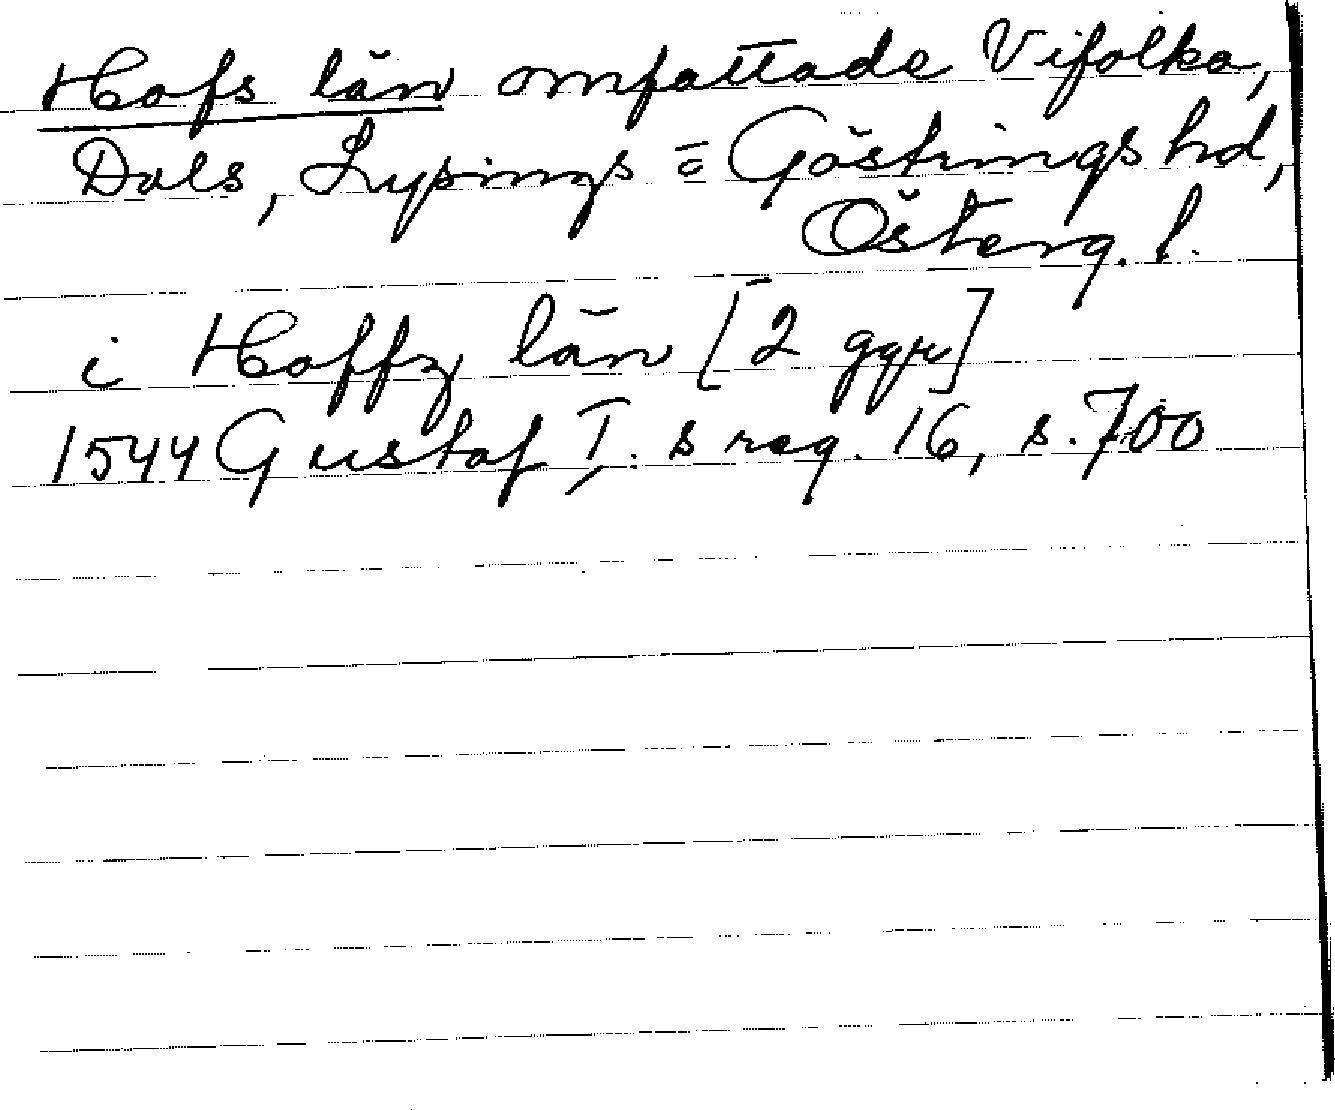 Hofs län omfattade Vifolka,
Dals, Lysings o Göstrings hd,
Österg. l.
i Hoffz län [2 ggr]
1544 Gustaf I:s reg. 16, s. 700